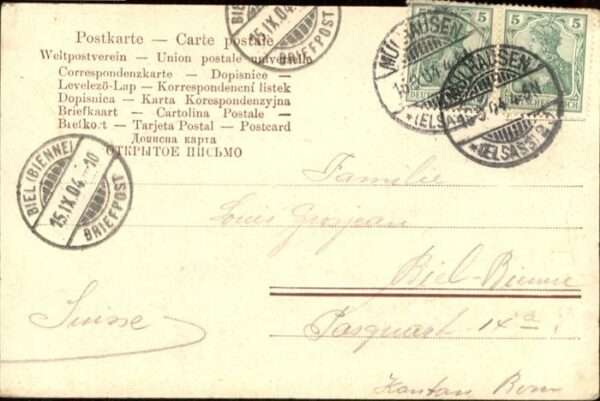 Postkarte — Carte postale
Weltpostverein — Union postale universelle
Correspondenzkarte — Dopisnice —
Levelező-Lap — Korrespondenční listek
Dopisnica — Karta Korespondenzyjna
Briefkaart — Cartolina Postale —
Brefkort — Tarjeta Postal — Postcard
Дописна карта
ОТКРЫТОЕ ПИСЬМО
15.IX.04
BRIEFPOST
5
5
MÜLHAUSEN
*(ELSASS)
MÜLHAUSEN
*(ELSASS)2
BIEL (BIENNE)
15.IX.04.-10
BRIEFPOST
Familie
Louis Grosjean
Biel-Bienne
Pasquart 14a
Suisse
Kanton Bern